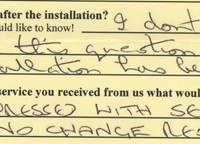 after the installation? I dont
uld like to know!
this question
allation has be
service you received from us what woul
PRESSED WITH SE
NO CHANGE RES